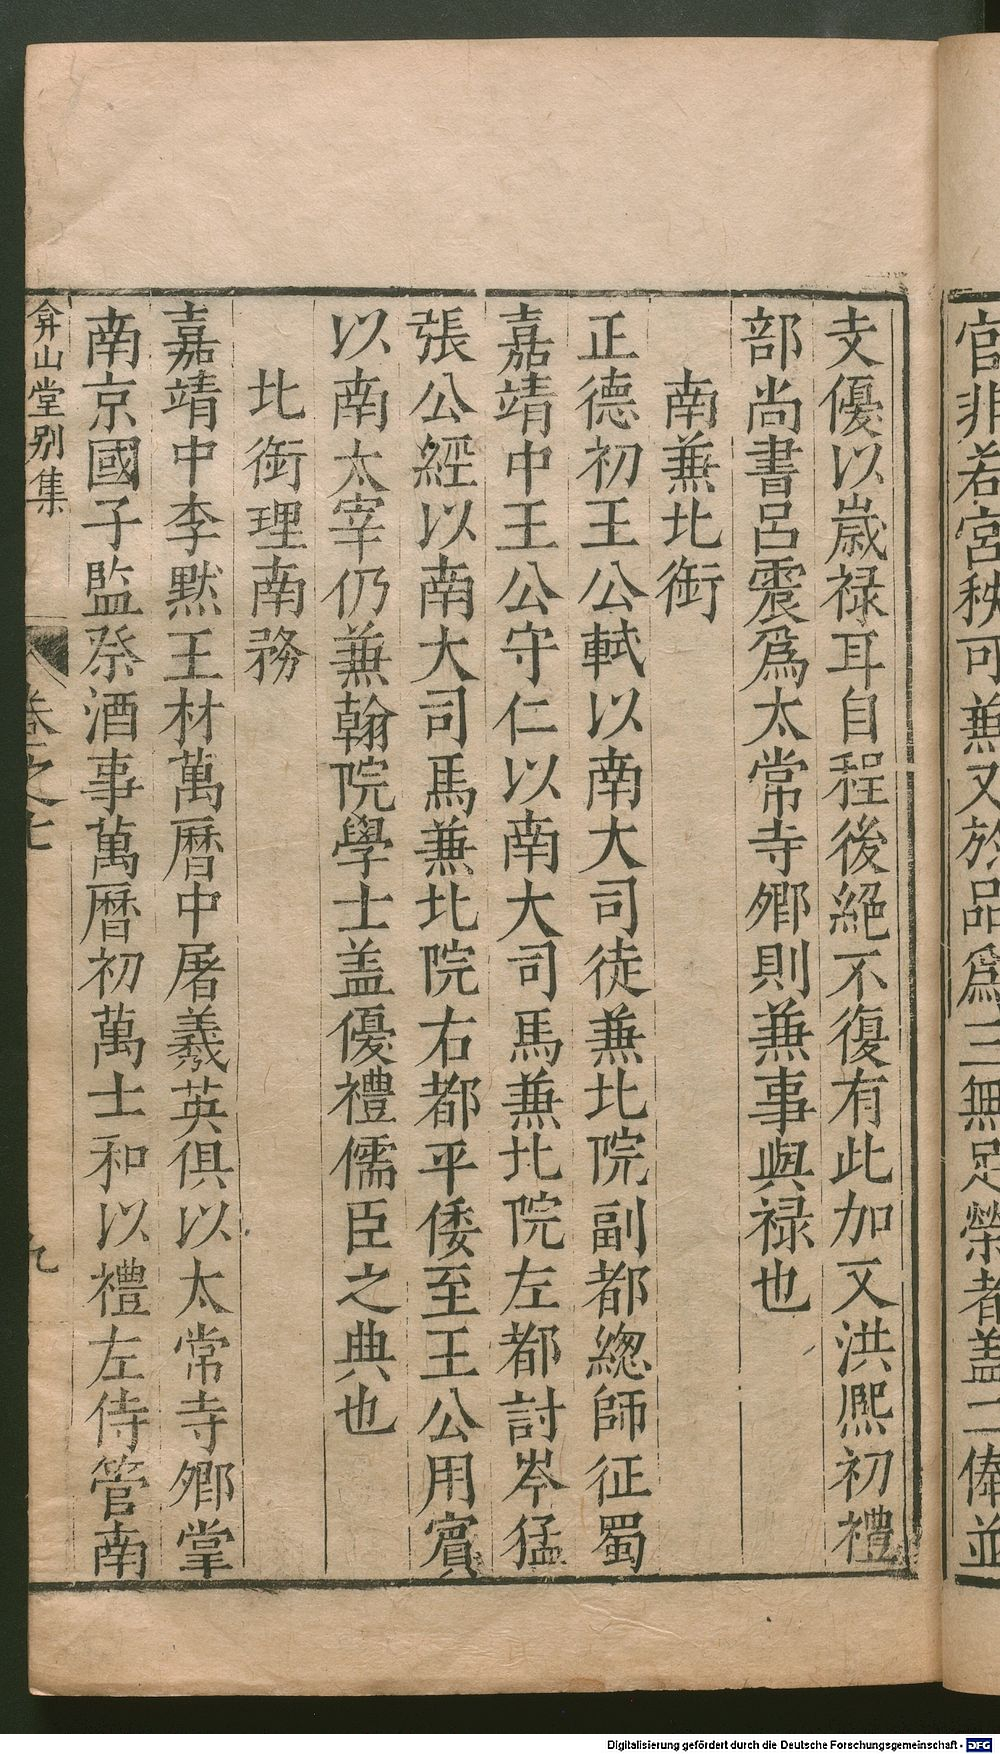 官非若宮秧可兼又於品爲三無足榮者葢二俸並
支優以歲禄耳自程後絕不復有此加又洪熈初禮
部尚書呂震爲太常寺卿則兼事與禄也
南兼北銜
正德初王公軾以南大司徒兼北院副都總師征蜀
嘉靖中王公守仁以南大司馬兼北院左都討岑猛
張公經以南大司馬兼北院右都平倭至王公用賓
以南太宰仍兼翰院學士盖優禮儒臣之典也
北銜理南務
嘉靖中李默王材萬曆中屠羲英俱以太常寺卿掌
南京國子監祭酒事萬曆初萬士和以禮左侍管南
弇山堂别集
卷之七
九
Digitalisierung gefördert durch die Deutsche Forschungsgemeinschaft - DFG